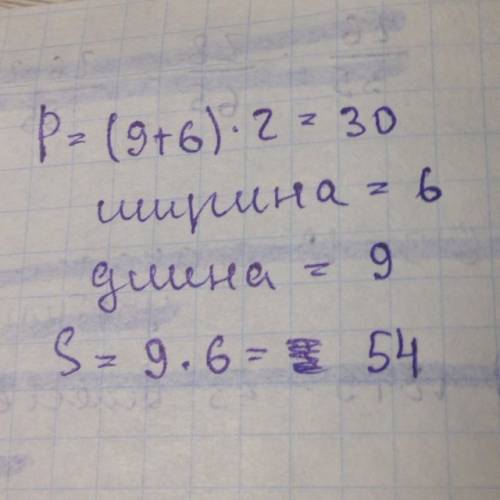 P = (9+6) · 2 = 30
ширина = 6
длина = 9
S = 9 · 6 = 54